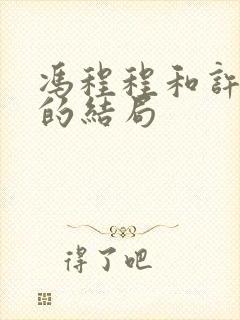 馮程程和許
的結局
得了吧